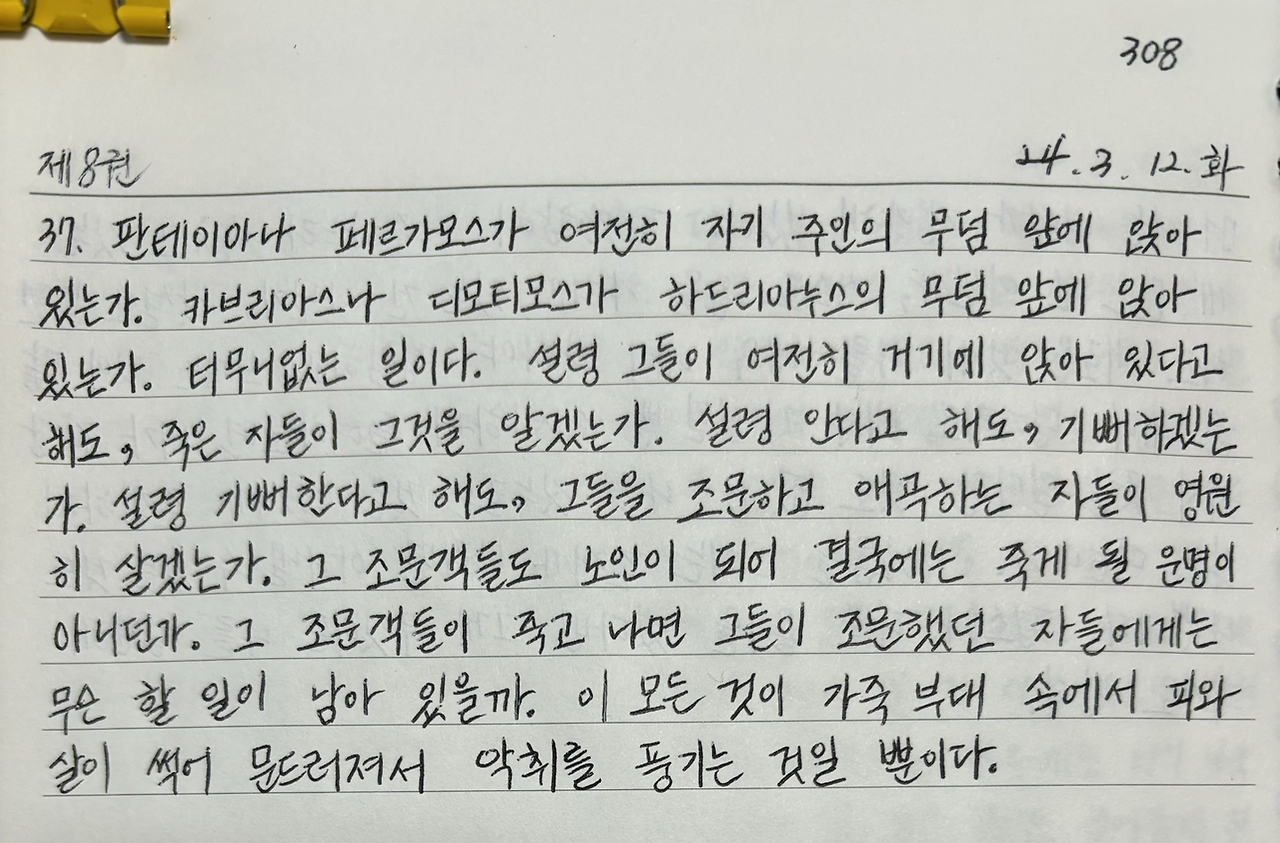 308
제8권 24.3.12.화
37. 판테이아나 페르가모스가 여전히 자기 주인의 무덤 앞에 앉아
있는가. 카브리아스나 디모티모스가 하드리아누스의 무덤 앞에 앉아
있는가. 터무니없는 일이다. 설령 그들이 여전히 거기에 앉아 있다고
해도, 죽은 자들이 그것을 알겠는가. 설령 안다고 해도, 기뻐하겠는
가. 설령 기뻐한다고 해도, 그들을 조문하고 애곡하는 자들이 영원
히 살겠는가. 그 조문객들도 노인이 되어 결국에는 죽게 될 운명이
아니던가. 그 조문객들이 죽고 나면 그들이 조문했던 자들에게는
무슨 할 일이 남아 있을까. 이 모든 것이 가죽 부대 속에서 피와
살이 썩어 문드러져서 악취를 풍기는 것일 뿐이다.